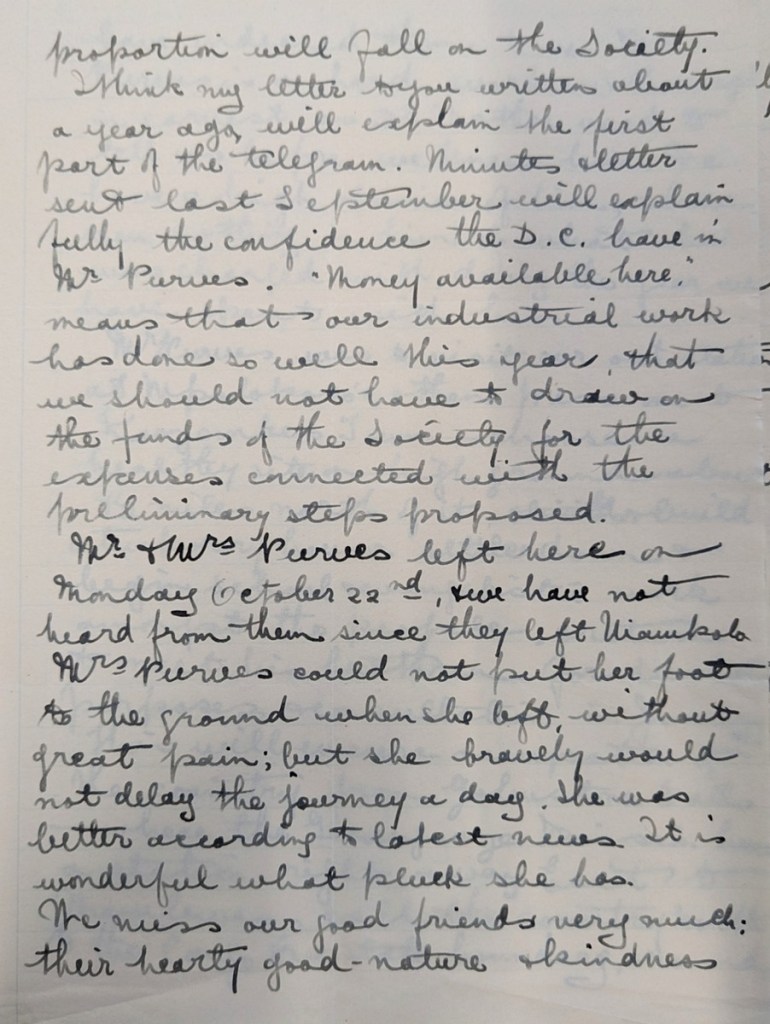 proportion will fall on the Society.
I think my letter to you written about
a year ago, will explain the first
part of the telegram. Minutes & letter
sent last September will explain
fully the confidence the D.C. have in
Mr Purves. "Money available here,"
means that our industrial work
has done so well this year, that
we should not have to draw on
the funds of the Society for the
expenses connected with the
preliminary steps proposed.
Mr. & Mrs Purves left here on
Monday October 22nd, & we have not
heard from them since they left
Mrs Purves could not put her foot
to the ground when she left, without
great pain; but she bravely would
not delay the journey a day. She was
better according to latest news. It is
wonderful what pluck she has.
We miss our good friends very much:
their hearty good-nature & kindness